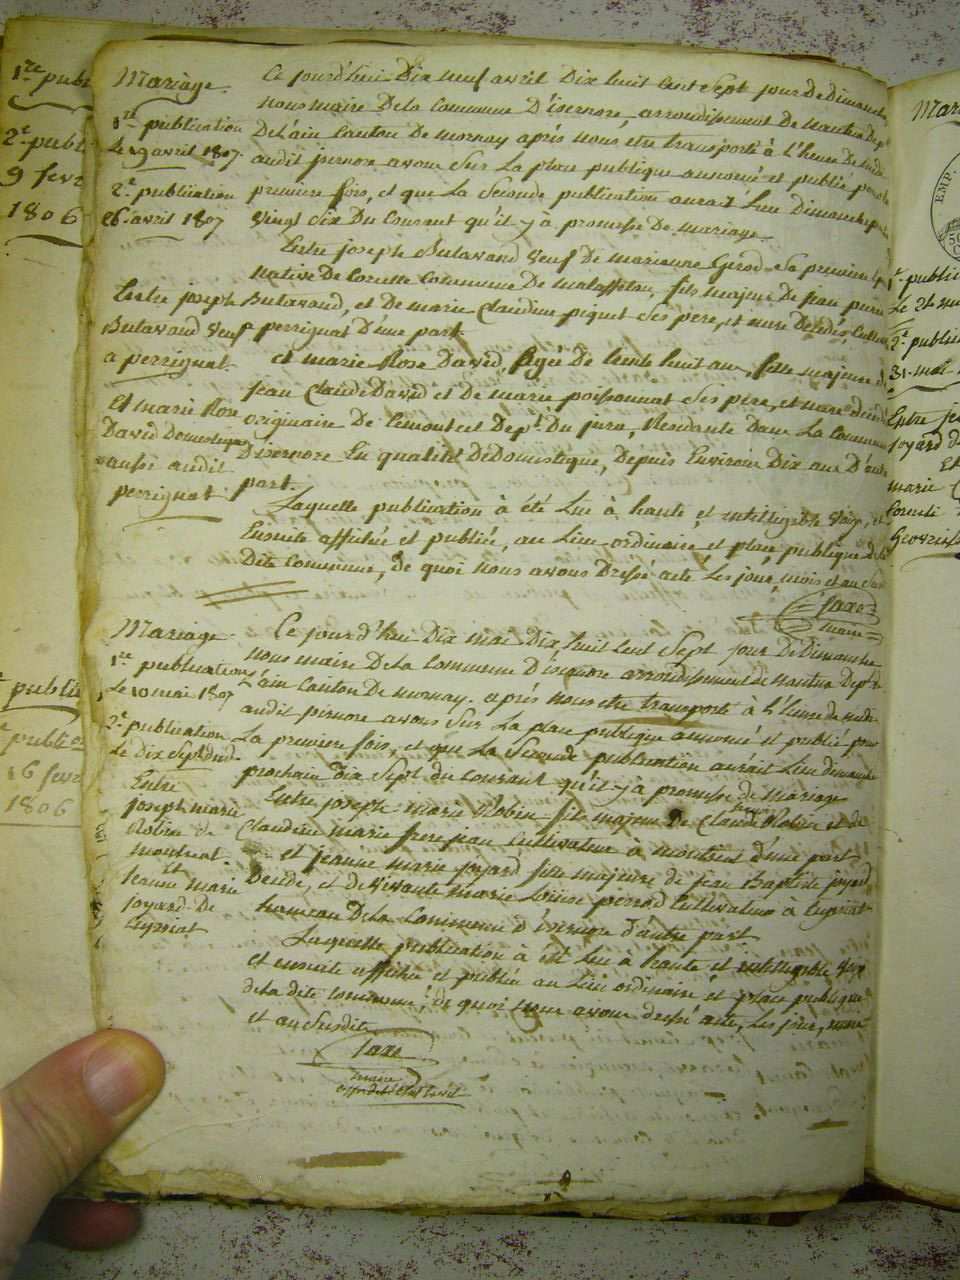 Mariage.
1re publication
Le 19 avril 1807.
2e publication
26 avril 1807
Ce jourd'hui Dix neuf avril Dix huit Cent Sept jour de dimanche
nous maire De la Commune D'isernore, arrondissement de Nantua Dept
De L'ain Canton de mornay après nous etre transporté à L'heure de midi
audit isernore avons Sur La place publique annoncé et publié pour la
premiere fois, et que La Seconde publication aurait Lieu Dimanche
Vingt Six Du Courant qu'il y à promesse de mariage.
Entre joseph Butavand Veuf
a perrignat.
Et marie Rose
David Domestique
aussi audit
perrignat
Entre joseph Butavand Veuf de marianne Girod Sa premiere
native De Commune De fils majeur De jean pierre
Butavand, et De marie Claudine piquet Ses pere, et mere
a perrignat D'une part.
et marie Rose David, Agée De trente huit ans, fille majeure de
jean Claude David et de marie poissonnat Ses pere, et mere
originaire De Dept Du jura, Residante Dans La Commune
D'isernore En qualité De Domestique, Depuis Environ Dix ans D'autre
part.
Laquelle publication à été Lue à haute et intelligible Voix, et
Ensuite affichée et publiée, au Lieu ordinaire et place publique de la
Dite Commune, de quoi nous avons Dressé acte Les jour, mois et an Sus
Jaxe
maire
Mariage.
1re publication
Le 10 mai 1807
2e publication
Le dix Sept dud.
Entre
joseph marie
Robin de
montreal.
Et
jeanne marie
joyard De
Ceyssiat
Ce jourd'hui Dix mai Dix huit Cent Sept jour De Dimanche
nous maire De la Commune D'isernore arrondissement de Nantua Dept de
L'ain Canton De mornay. après nous etre transporté à L'heure de midi
audit isernore avons Sur La place publique annoncé et publié pour
La premiere fois, et que La Seconde publication aurait Lieu dimanche
prochain dix Sept du Courant qu'il y à promesse de Mariage
Entre joseph marie Robin fils majeur De Claude Robin et de
Claudine marie frerejean Cultivateur à montreal d'une part
et jeanne marie joyard fille majeure de jean Baptiste joyard
Decedé, et de Vivante marie Louise perrod Cultivateur à Ceyssiat
hameau De la Commune d'isernore d'autre part
Laquelle publication à été Lue à haute et intelligible Voix
et ensuite affichée et publiée au Lieu ordinaire et place publique
de la dite commune, de quoi nous avons dressé acte, Les jour, mois
et an Susdits
Jaxe
maire
officier de l'Etat Civil
1re publ
2e publ
9 fevr
1806
publi
publi
16 fevr
1806
Mari
EMP.
publi
Le 24 mai
2e publi
31 mai
Entre
joyard d
Et
marie